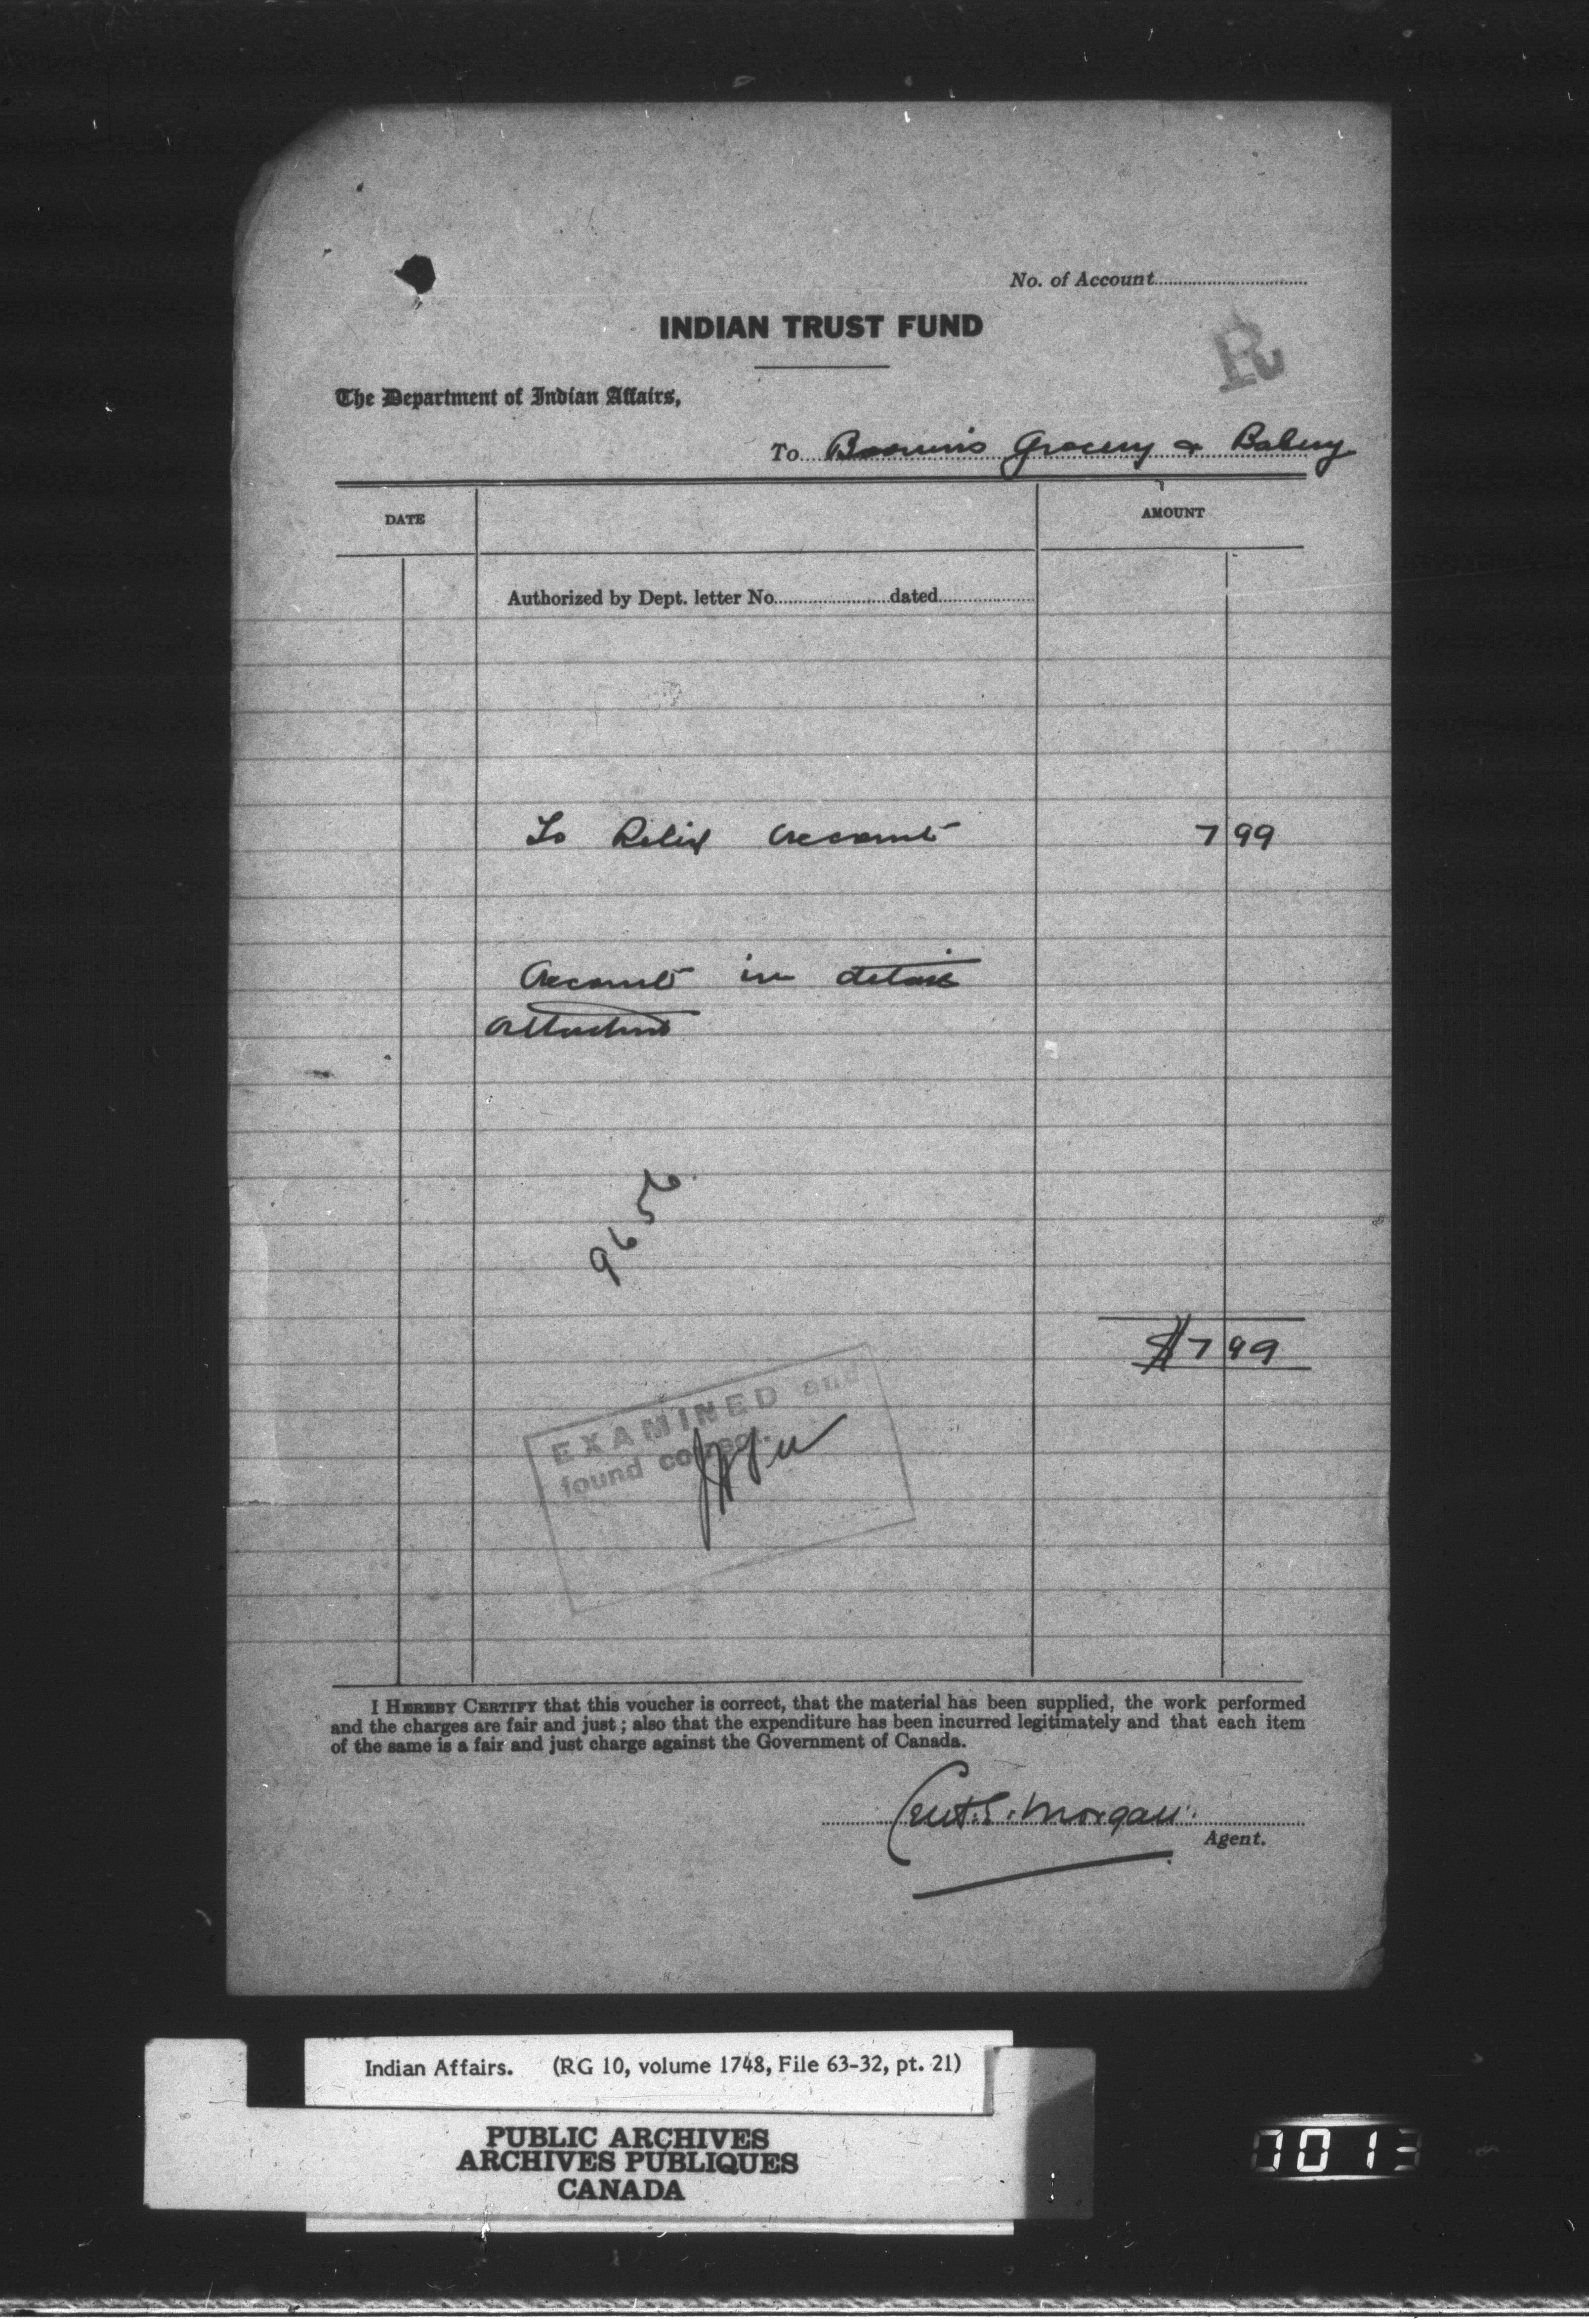 No. of Account
INDIAN TRUST FUND
R
The Department of Indian Affairs,
To Grocery & Bakery
DATE
AMOUNT
Authorized by Dept. letter No. dated
To Relief Account 7 99
Account in detail
attached
$7 99
EXAMINED and
found correct.
I HEREBY CERTIFY that this voucher is correct, that the material has been supplied, the work performed
and the charges are fair and just; also that the expenditure has been incurred legitimately and that each item
of the same is a fair and just charge against the Government of Canada.
E. Morgan
Agent.
Indian Affairs. (RG 10, volume 1748, File 63-32, pt. 21)
PUBLIC ARCHIVES
ARCHIVES PUBLIQUES
CANADA